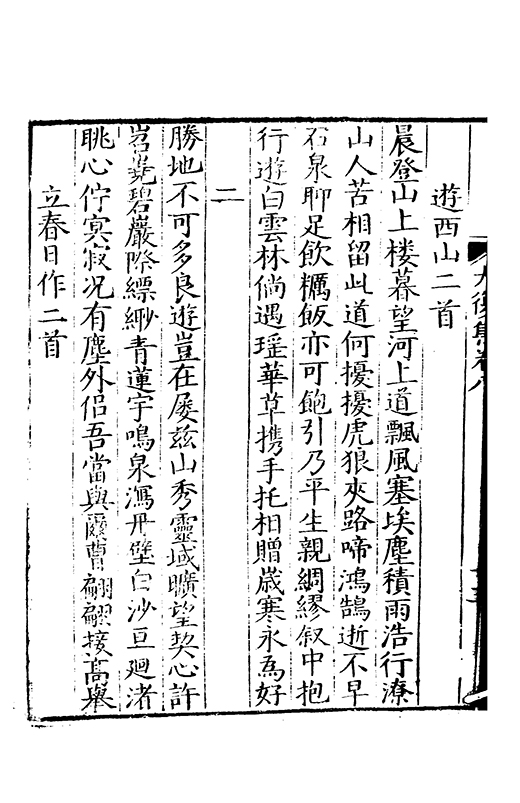 遊西山二首
晨登山上楼暮望河上道飄風塞埃塵積雨浩行潦
山人苦相留此道何擾擾虎狼夾路啼鴻鵠逝不早
石泉聊足飲糲飯亦可飽引乃平生親綢繆叙中抱
行遊白雲林倘遇瑶華草携手托相贈歲寒永為好
二
勝地不可多良遊豈在屡兹山秀靈域曠望契心許
岧嶤碧巖際縹緲青蓮宇鳴泉瀉丹壁白沙亘廻渚
眺心佇寞寂况有塵外侣吾當與霞曹翩翩接高舉
立春日作二首